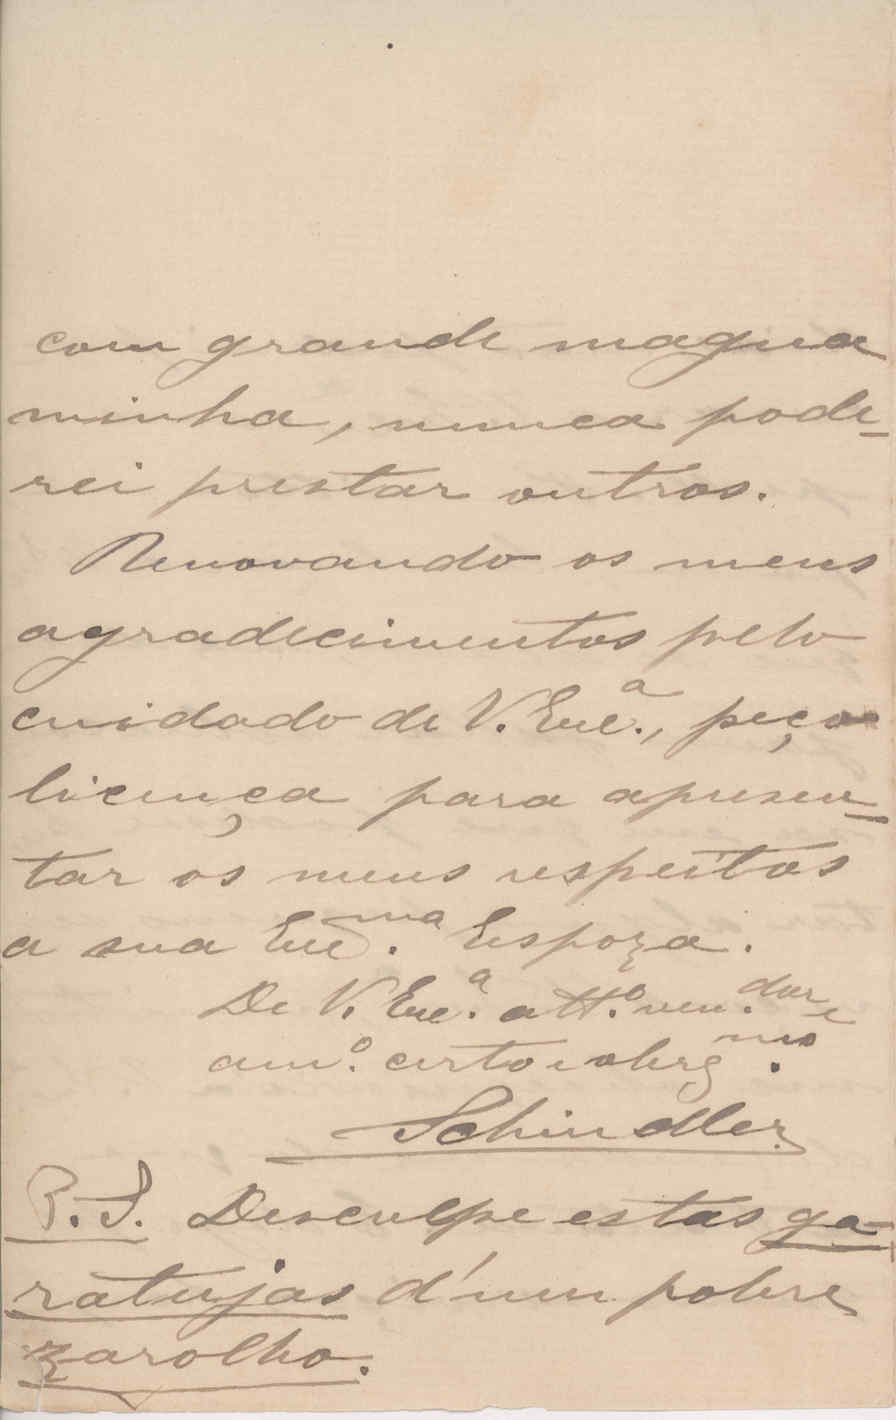 com grande magua
minha, nunca pode-
rei prestar outros.
Renovando os meus
agradecimentos pelo
cuidado de V. Exc.ª, peço
licença para apresen-
tar os meus respeitos
a sua Exc.ma Espoza.
De V. Exc.ª att.º ven.dor e
am.º certo e obrg.mo
Schindler
P.S. Desculpe estas ga-
ratujas d'um pobre
zarolho.